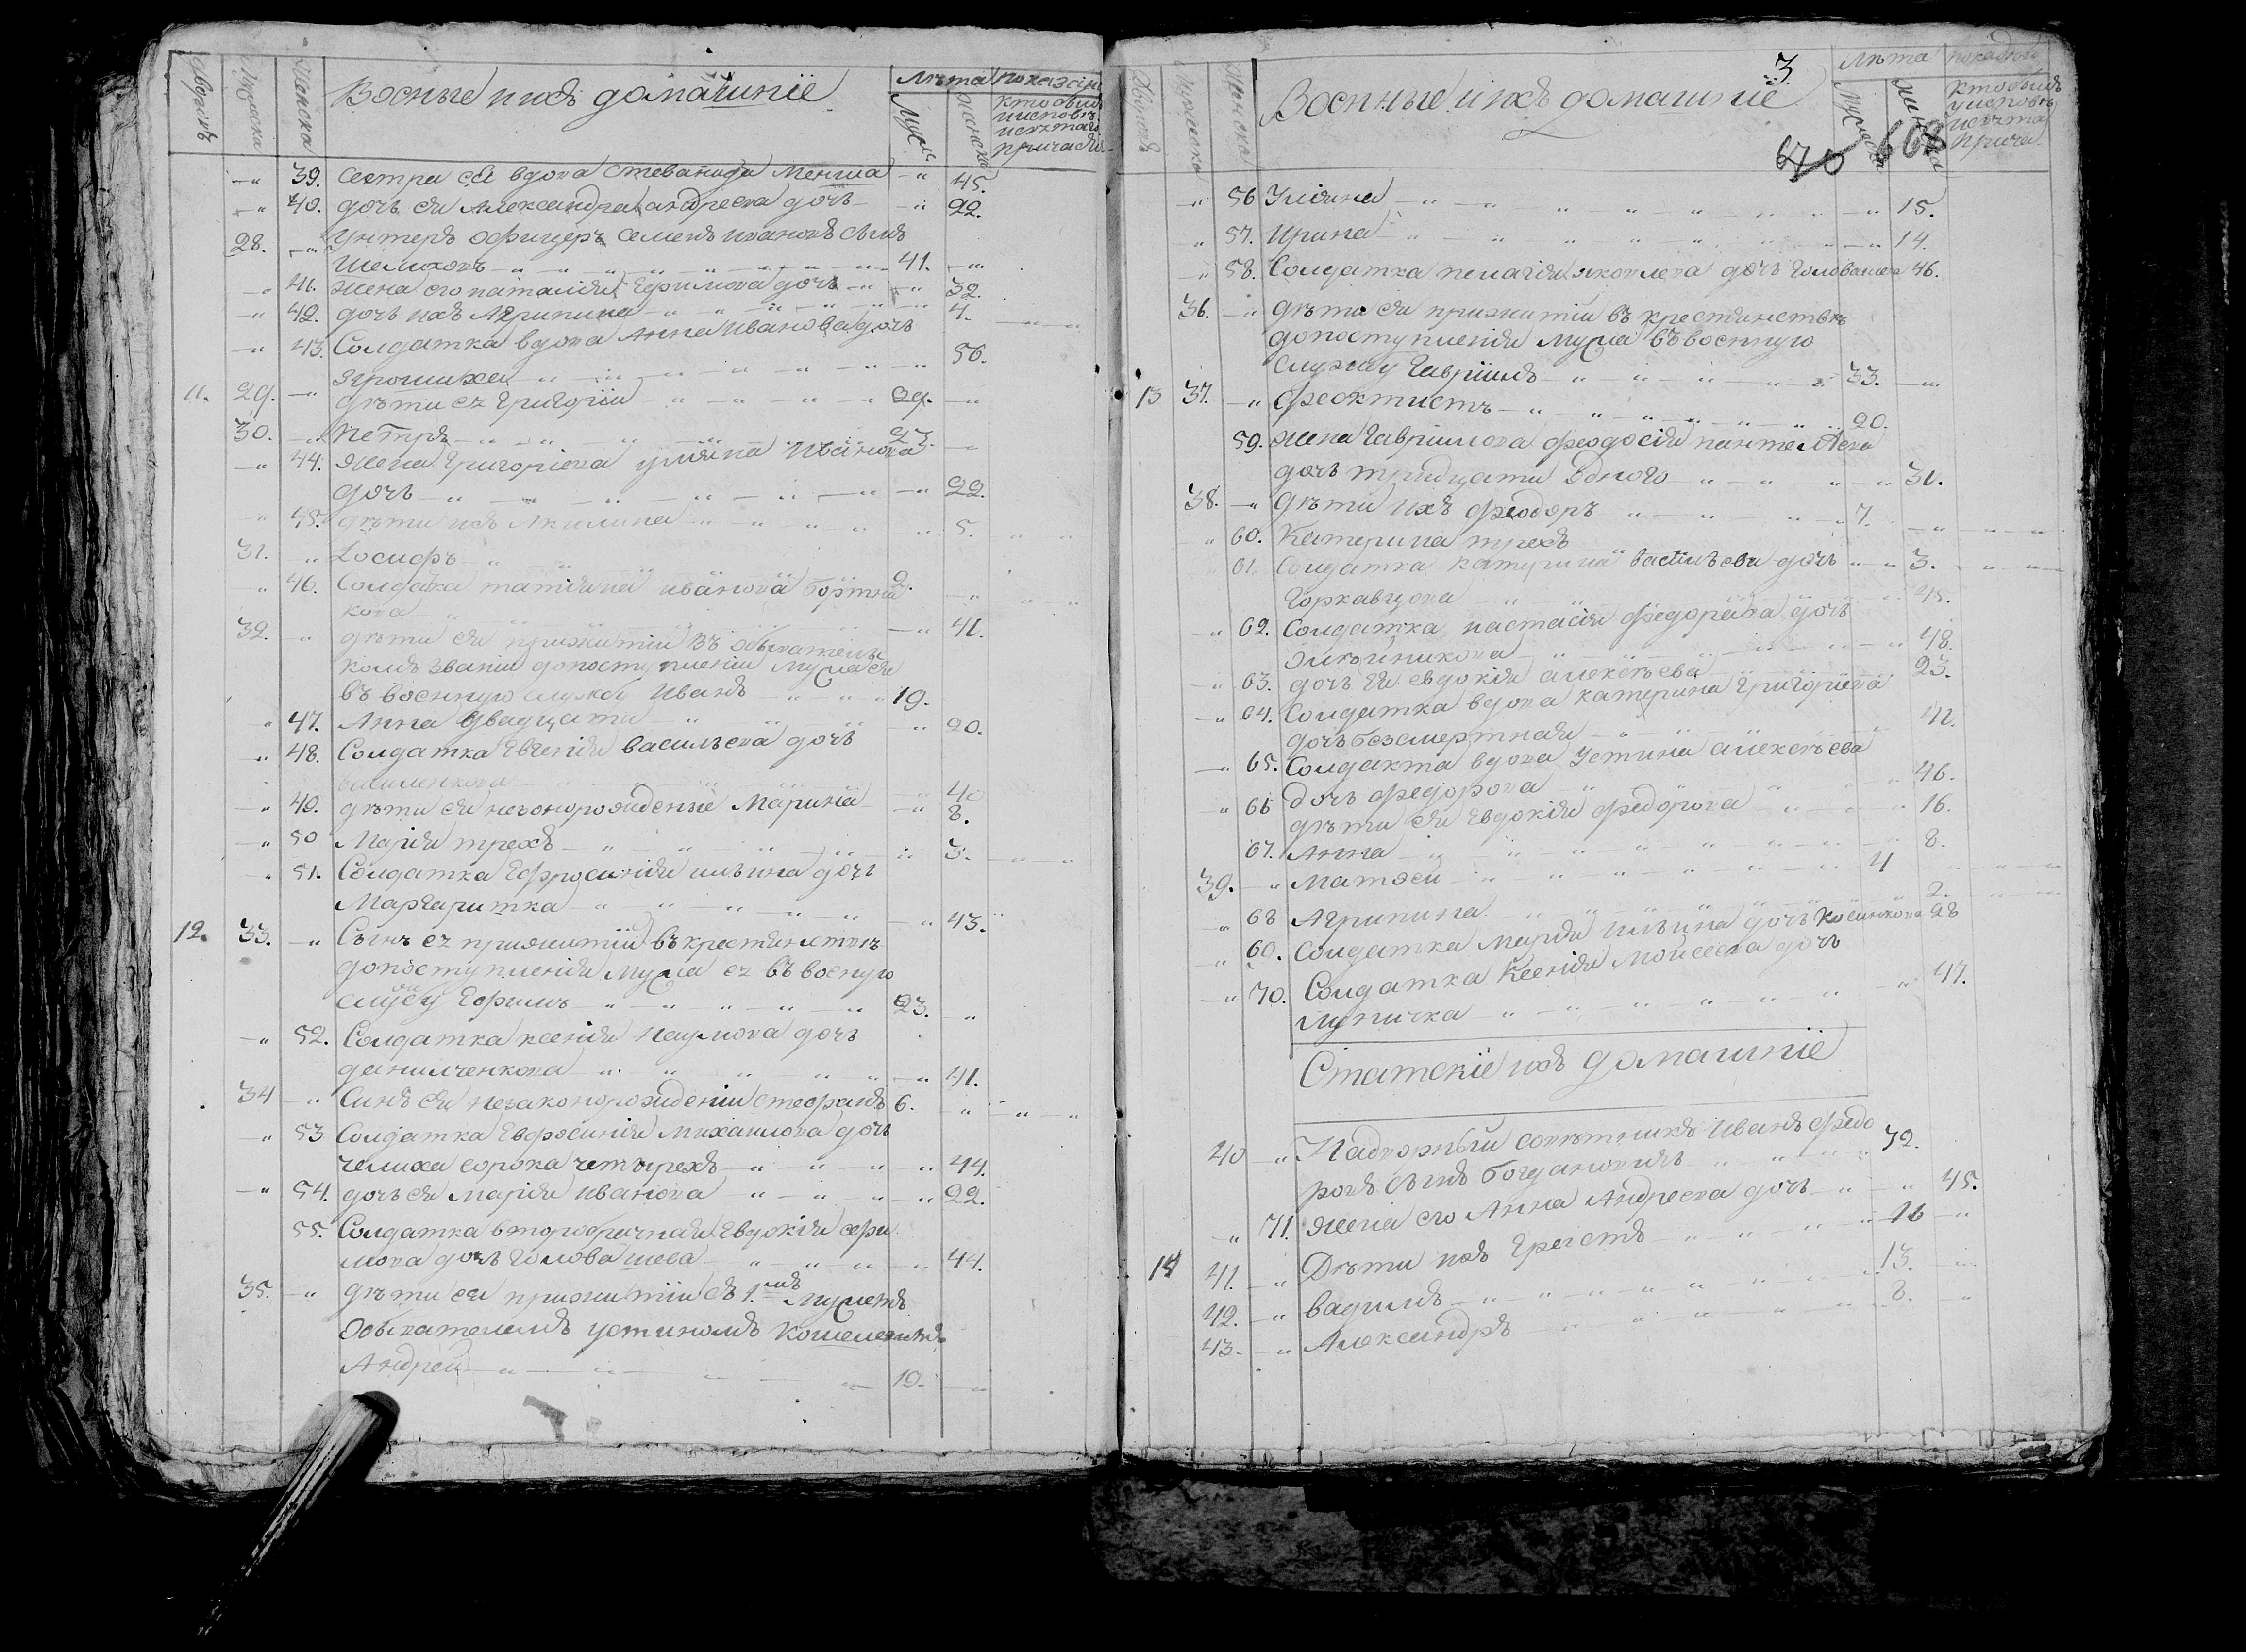 Дворовъ Мужеска Женска Военные и ихъ домашнiе Лѣта Мужск Женска показанi кто былъ
—" 39. сестра ея вдова Стеванида —" 45.
—" 40. дочь ея Александра андреева дочь —" 22.
28. —" Унтеръ офицеръ Семенъ ивановъ сынъ
Шелиховъ 41. —"
—" 41. жена его наталiя Ефимова дочь —" 32.
—" 42. дочь ихъ Агрипина 4.
—" 43. Солдатка вдова Анна Иванова дочь
56.
11. 29. —" дѣти ех Григорiи 29. —"
30. —" Петръ 23. —"
—" 44. жена Григорiева улияна Иванова
дочь —" 22.
—" 45. дѣти ихъ Акилина " 5.
31. " Iосифъ 2.
" 46. Солдатка татiяна иванова бортни
кова —" 41.
32. " дѣти ея прижитiи въ обывательс
комъ званiи допоступленiи мужа ея
въ военную службу Иванъ 19.
" 47. Анна двадцати —" 20.
—" 48. Солдатка Евгенiя васильева дочь
40
—" 49. дѣти ея незонорожденые Марина —" 8.
—" 50 Марiя трехъ 3.
—" 51. Солдатка Ефросинiя ильина дочь
Маргаритка —" 43.
12. 33. —" Сынъ ех прижитiй въ крестянствѣ
допоступленiя мужа ех въ военую
службу Ефимъ 23. —"
—" 52. Солдатка ксенiя Наумова дочь
данильченкова —" 41.
34 —" Синъ ея незаконорожденiи стефанъ 6. —"
" 53 Солдатка Евфросинiя Михаилова дочь
челиха сорока четырехъ " 44.
—" 54. дочь ея Марiя иванова —" 22.
55. Солдатка второбрачная Евдокiя ефи
мова дочь Головашева —" 44.
35. —" дѣти ея прижитiи съ 1.мъ мужемъ
Обывателемъ устиномъ
Андрей 10. —"
3
Дворовъ Мужеска Женска Военные и ихъ домашнiе Лѣта Мужеска Женска показаной кто былъ
670 668
—" 56 Улiяна —" 15.
" 57. Ирина —" 14.
—" 58. Солдатка пелагiя яковлева дочь Головашева 46.
36. —" дѣти ея прижитiи въ крестянствѣ
допоступленiя мужа въ военную
службу Гаврiилъ 33. —"
13 37. —" Феоктистъ 20.
59. жена Гаврiилова феодосiя пантелѣева
дочь тридцати одного —" 31.
38. —" дѣти ихъ феодоръ 7. —"
" 60. Катерина трехъ
61. Солдатка катерина васильева дочь " 3.
Горкавцова 45.
—" 62. Солдатка настасiя федорова дочь
" 48.
—" 63. дочь ея евдокiя алексѣева 23.
—" 64. Солдатка вдова катерина Григорiева
дочь безсмертная 42.
—" 65. Солдакта вдова Устина алексѣева
дочь федорова " 46.
" 66 дѣти ея Евдокiя федорова " 16.
67. Анна 8.
39. —" Матвей 4
—" 68 Агрипина 2.
" 69. Солдатка Марiя ильина дочь 28
—" 70. Солдатка Ксенiя Моисеева дочь
—" 47.
Статскiе ихъ домашнiе
40 —" Надворный советникъ Иванъ федо
ровъ сынъ богдановичъ 72.
—" 71. жена его Анна Андреева дочь —" 45.
14 41. —" Дѣти ихъ 16 —"
42. —" вадимъ 13. —"
43. —" Александръ 8. —"